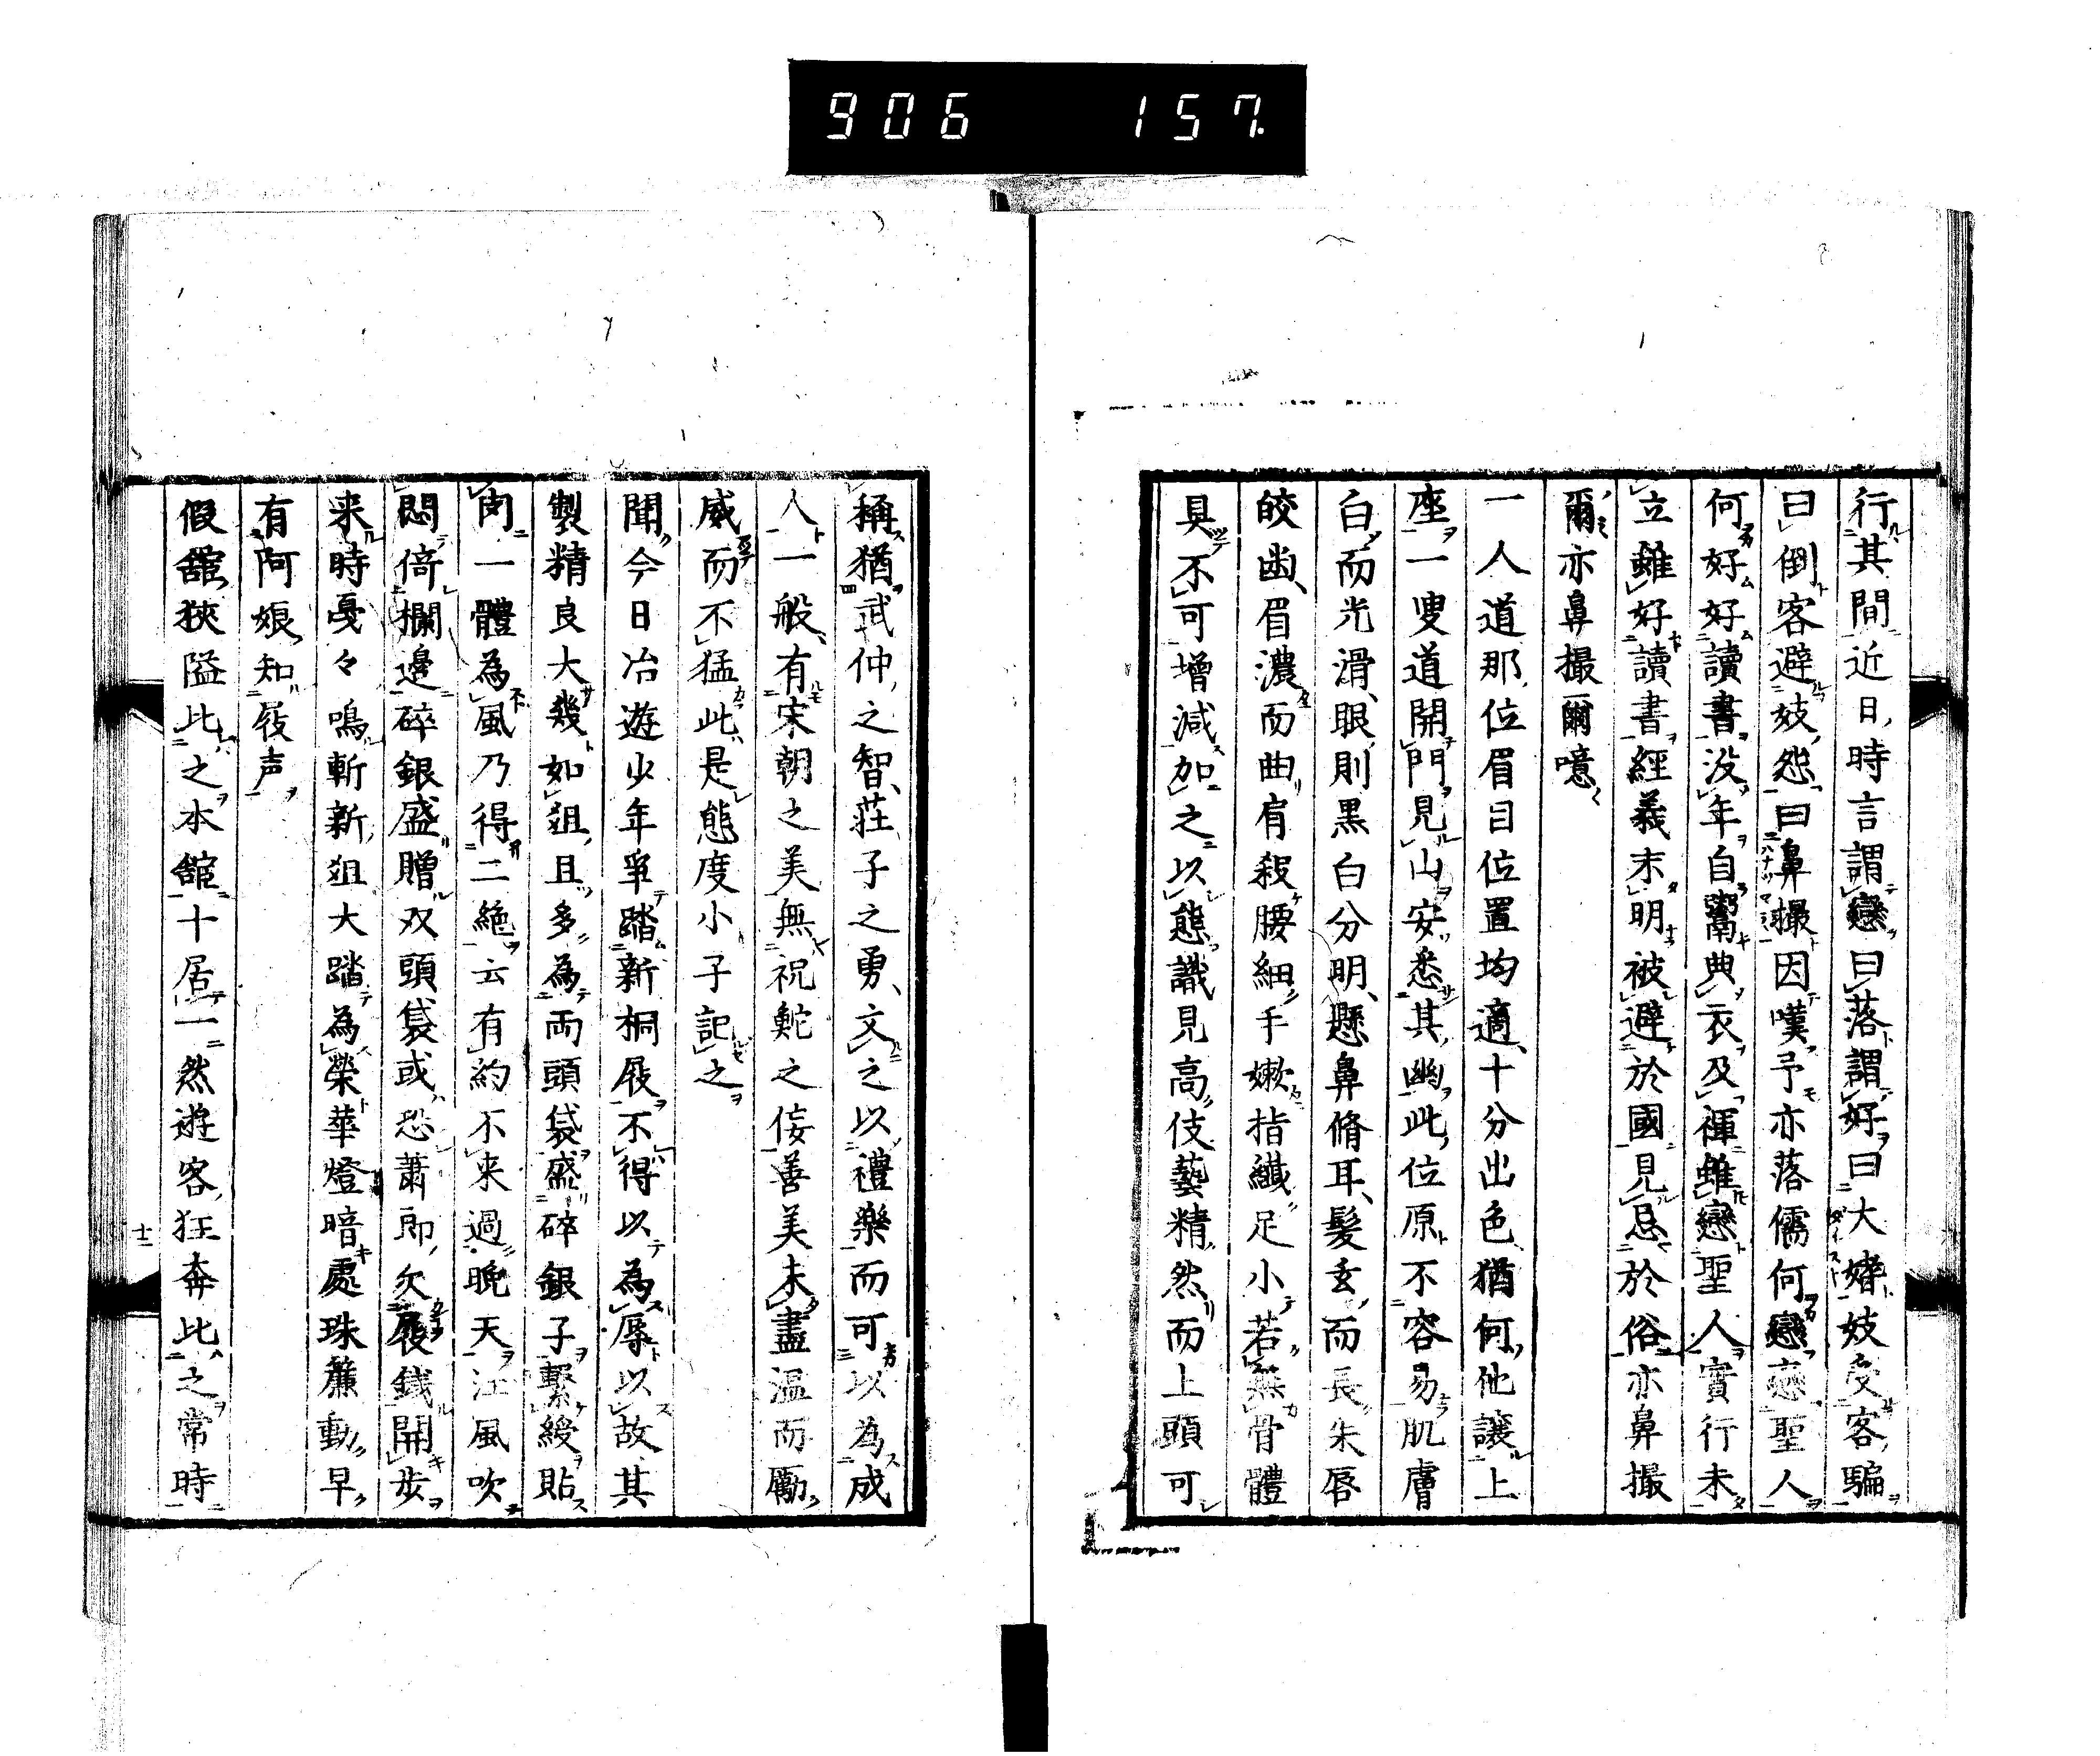 906 157.
行其間近日時言謂戀曰落謂好曰大媎妓受客騙
曰倒客避妓怨曰鼻撮因嘆予亦落儒何戀戀聖人
何好好讀書没年自鬻典衣及褌雖戀聖人實行未
立雖好讀書經義未明被避於國見忌於俗亦鼻撮
爾亦鼻撮爾噫
一人道那位眉目位置均適十分出色猶何他讓上
座一叟道開門見山安悉其幽此位原不容易肌膚
白而光滑眼則黒白分明懸鼻脩耳髮玄而長朱唇
皎齒眉濃而曲肩殺腰細手嫩指纎足小若無骨體
具不可增減加之以態識見高伎藝精然而上頭可
稱猶武仲之智荘子之勇文之以禮樂而可以為成
人一般有宋朝之美無祝鮀之侫善美未盡温而厲
威而不猛此是態度小子記之
聞今日冶遊少年爭踏新桐屐不得以為辱以故其
製精良大幾如俎且多為両頭袋盛碎銀子繋綬貼
肉一體為風乃得二絶云有約不来過晩天江風吹
悶倚欄邊碎銀盛贈双頭袋或恐蕭郎欠屐銭開歩
来時戞々鳴斬新俎大踏為榮華燈暗處珠簾動早
有阿娘知屐声
假舘狹隘此之本舘十居一然遊客狂奔此之常時
十二